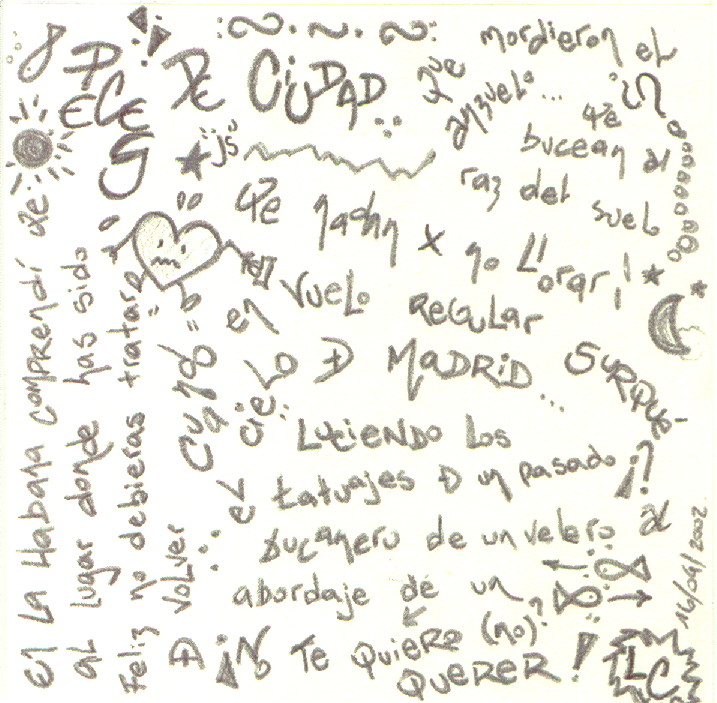 PECES DE CIUDAD
que mordieron el
anzuelo...
qe bucean al
raz del suelo
qe nadan x no LLorar!
En La Habana comprendí qe
al lugar donde has sido
Feliz no debieras tratar=
D volver
Cuando=
en vuelo REGULAR
SURQUÉ
el cieLO D MADRID...
LuciENDO los
tatuajes D un pasado
bucanero de un velero al
abordaje de un
TE QUIERO (no)?
QUERER!
16/04/2002
LC